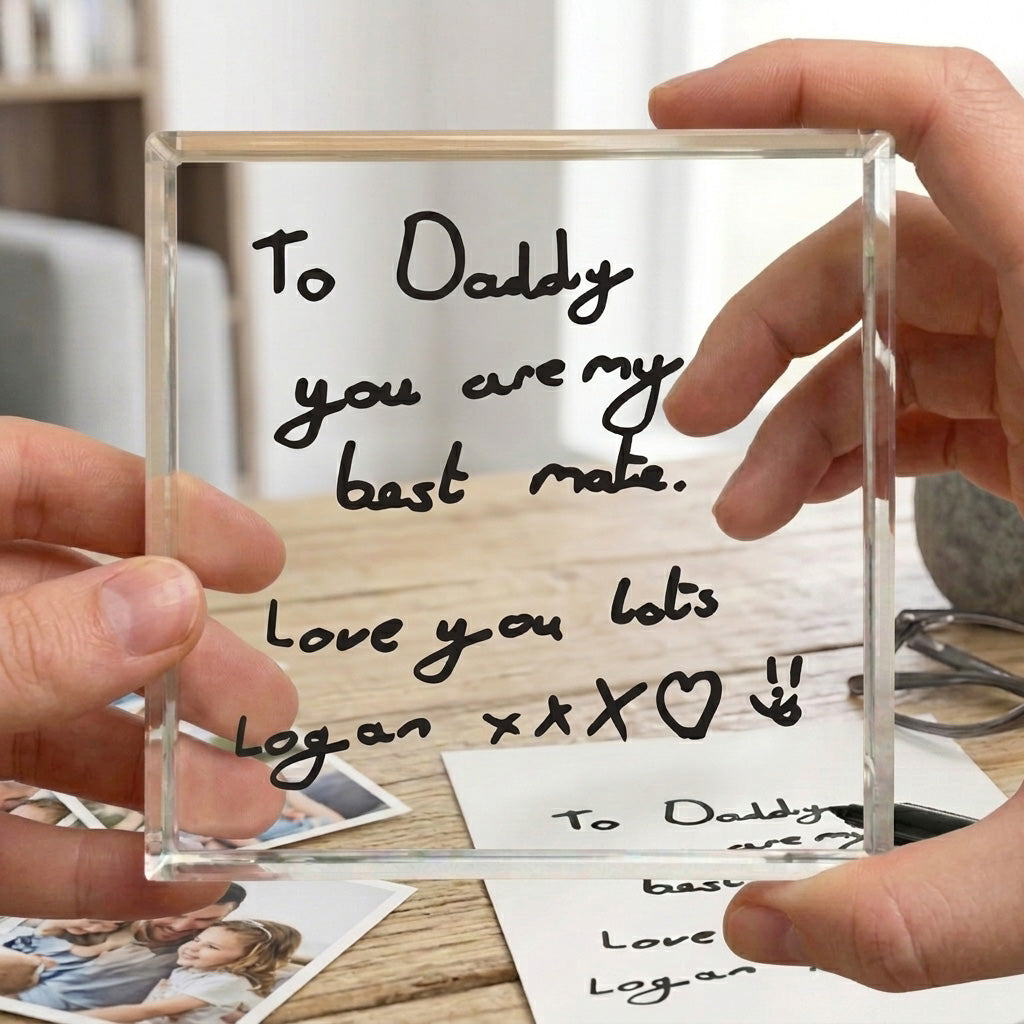 To Daddy
you are my
best mate.
Love you lots
Logan xxx♡
To Daddy
are my
best
Love
Logan